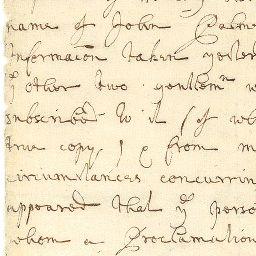 name of John Palm
Informacōn taken yester
yͤ other two gentlemⁿ w
subscribed to it (of wh
true copy) & from m
circumstances concurrin
appeared that yͤ perso
whom a Proclamation